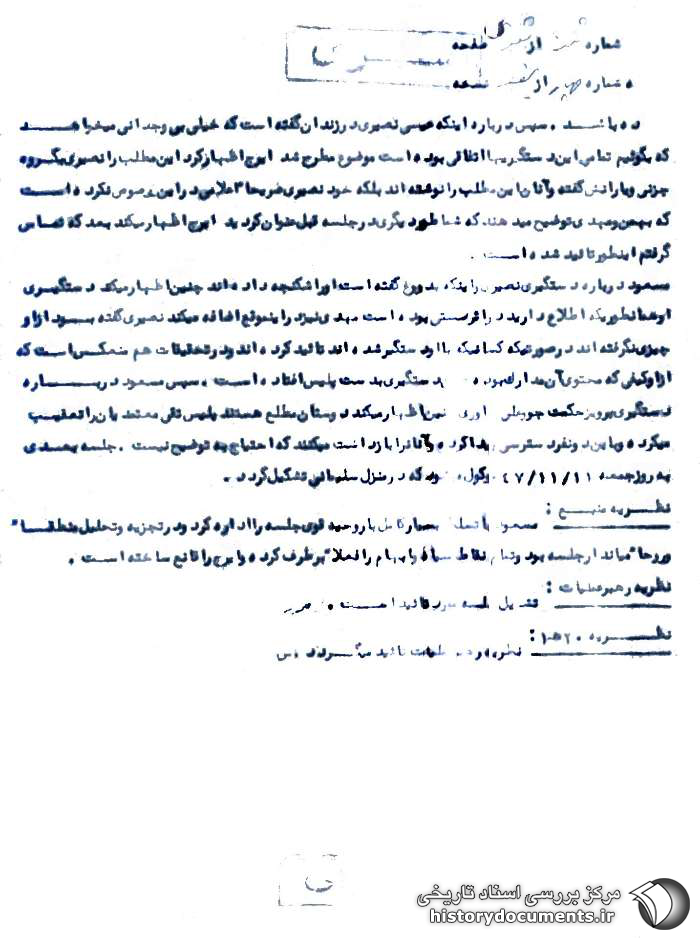 شماره از صفحه
سری
شماره چهار از نسخه
ده باشد . سپس درباره اینکه عیسی نصیری در زندان گفته است که خیلی بی وجدانی میخواهد
که بگوئیم تمامی این دستگیریها اتفاقی بوده است موضوع مطرح شد ایرج اظهار کرد این مطلب را نصیری بگروه
جزنی و یارانش گفته و آنان این مطلب را نوشته اند بلکه خود نصیری صریحا اعلامی در این خصوص نکرده است
که بهمن و مهدی توضیح میدهند که شما طور دیگری در جلسه قبل عنوان کردید ایرج اظهار میکند بعد که تماس
گرفتم اینطور تائید شده است .
مسعود درباره دستگیری نصیری و اینکه بدروغ گفته است اورا شکنجه داده اند چنین اظهار میکند دستگیری
او همانطوریکه اطلاع دارید در بوده است مهدی نیز در اینموقع اضافه میکند نصیری گفته بود از او
چیزی نگرفته اند در صورتیکه کسانیکه با او دستگیر شده اند تائید کرده اند و در تحقیقات هم منعکس است که
از او کیفی که محتوی آن مدارک بوده دستگیری بدست پلیس افتاده است . سپس مسعود درباره
دستگیری پرویز حکمت جو علی خاوری چنین اظهار میکند دوستان مطلع هستند پلیس تقی معتمدیان را تعقیب
میکرده و باین دو نفر دسترسی پیدا کرده و آنانرا بازداشت میکنند که احتیاج به توضیح نیست . جلسه بعدی
به روز جمعه ۴۷/۱۱/۱۱ موکول شود که در منزل سلیمانی تشکیل گردد .
نظریه منبع :
مسعود با تسلط بسیار کامل با روحیه قوی جلسه را اداره کرد و در تجزیه و تحلیل منطقا"
و روحا" میاندار جلسه بود و تمام نقاط سیاه و ابهام را فعلا" برطرف کرده و ایرج را قانع ساخته است .
نظریه رهبر عملیات :
تشکیل جلسه مورد تائید است .
نظریه ۵۲۰ ه ۱ :
نظریه رهبر عملیات تائید میگردد . س
سری
مرکز بررسی اسناد تاریخی
historydocuments.ir